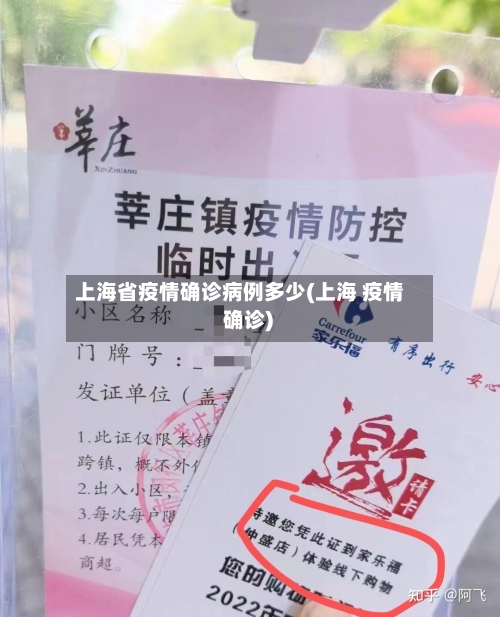 莘庄
XINZHUANG
莘庄镇疫情防控
临时出
上海省疫情确诊病例多少(上海 疫情
确诊)
小区名称
门牌号:
发证单位(盖
1.此证仅限本镇
跨镇,概不外
2.出入小区,
3.每次每户限
4.居民凭本
商超。
Carrefour
家乐福
有序出行
安心
邀
请卡
特邀您凭此证到家乐福
(仲盛店)体验线下购物
您的购
2022年
知乎 @阿飞